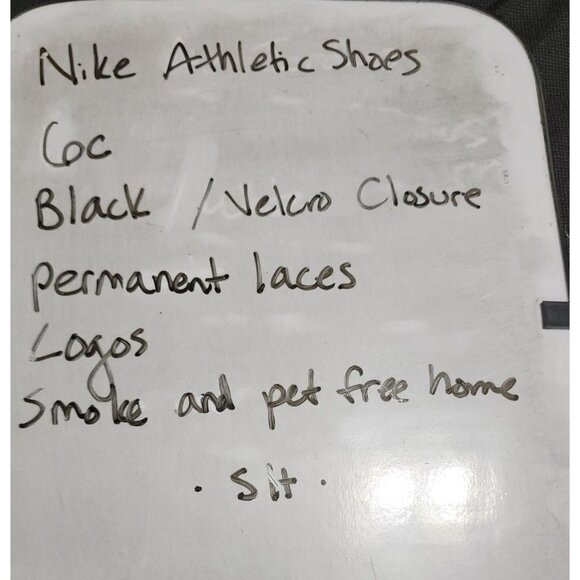 Nike Athletic Shoes
6c
Black / Velcro Closure
permanent laces
Logos
Smoke and pet free home
. Sit .